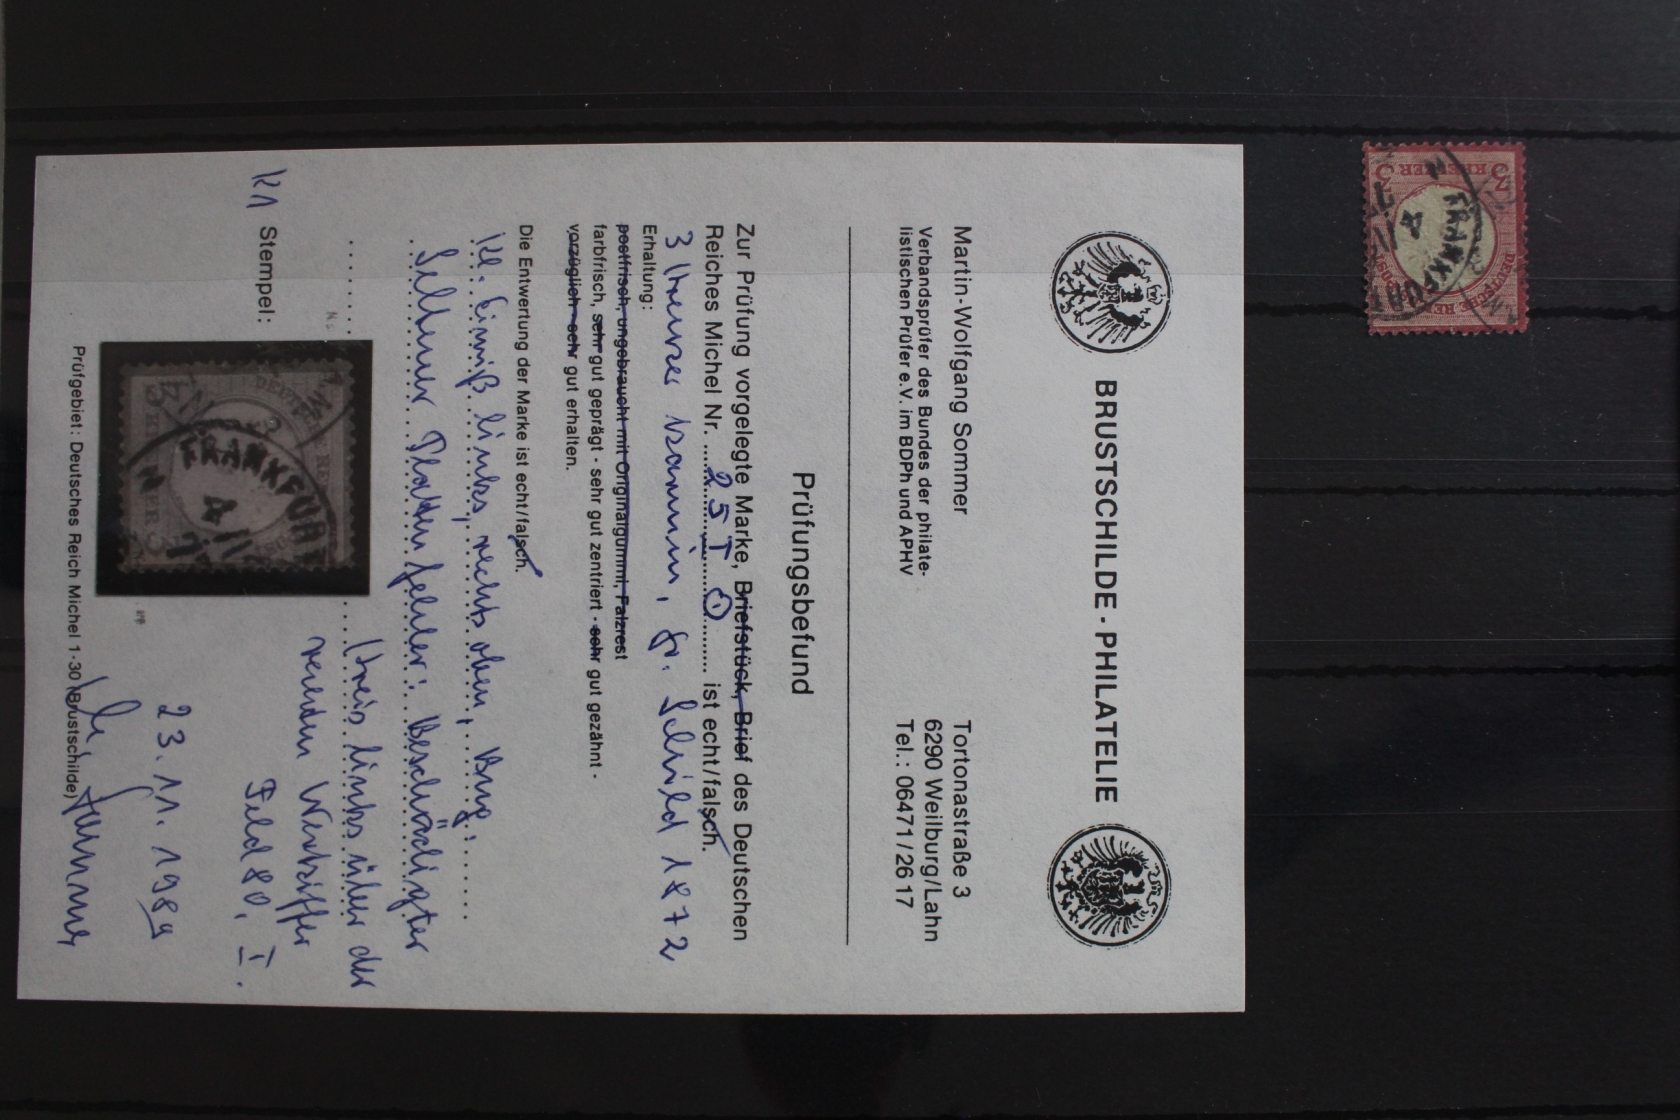 BRUSTSCHILDE - PHILATELIE
Martin-Wolfgang Sommer
Verbandsprüfer des Bundes der philate-
listischen Prüfer e.V. im BDPh und APHV
Tortonastraße 3
6290 Weilburg/Lahn
Tel.: 06471/2617
Prüfungsbefund
Zur Prüfung vorgelegte Marke, Briefstück, Brief des Deutschen
Reiches Michel Nr. 25 I ist echt/falsch.
3 Kreuzer karmin, gr. Schild 1872
Erhaltung:
postfrisch, ungebraucht mit Originalgummi, Falzrest
farbfrisch, sehr gut geprägt - sehr gut zentriert - sehr gut gezähnt -
vorzüglich - sehr gut erhalten.
Die Entwertung der Marke ist echt/falsch.
kl. Einriß links, rechts oben, Bug.
Seltener Plattenfehler: Beschädigter
Kreis links über der
rechten Wertziffer
Feld 80, I.
K1 Stempel:
FRANKFURT
4 11
23.11.1989
Prüfgebiet: Deutsches Reich Michel 1-30 (Brustschilde)
M. Sommer
3 KREUZER 3
DEUTSCHE REICHS-POST
FRANKFURT
4 11